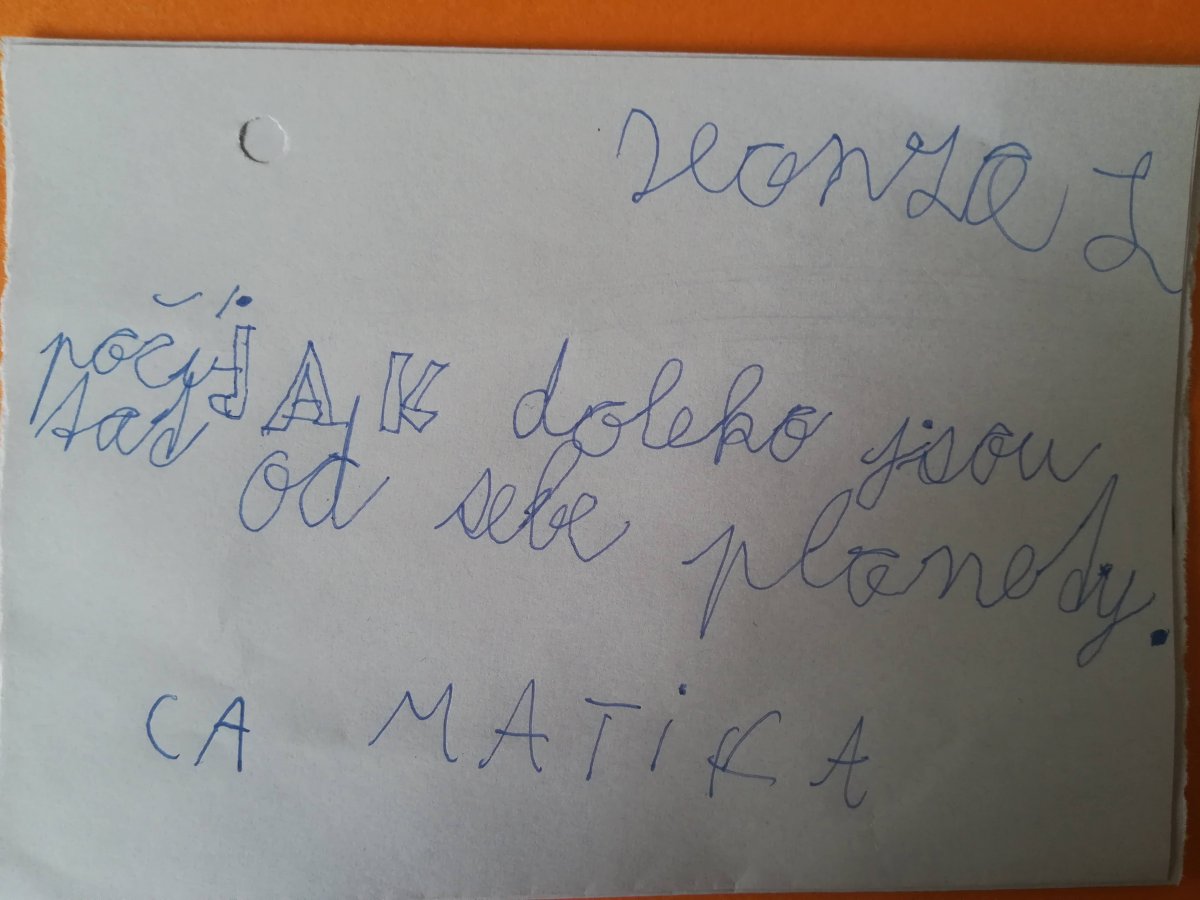 Honza L
počí jAK daleko jsou
tat od sebe planety.
CA MATiKA